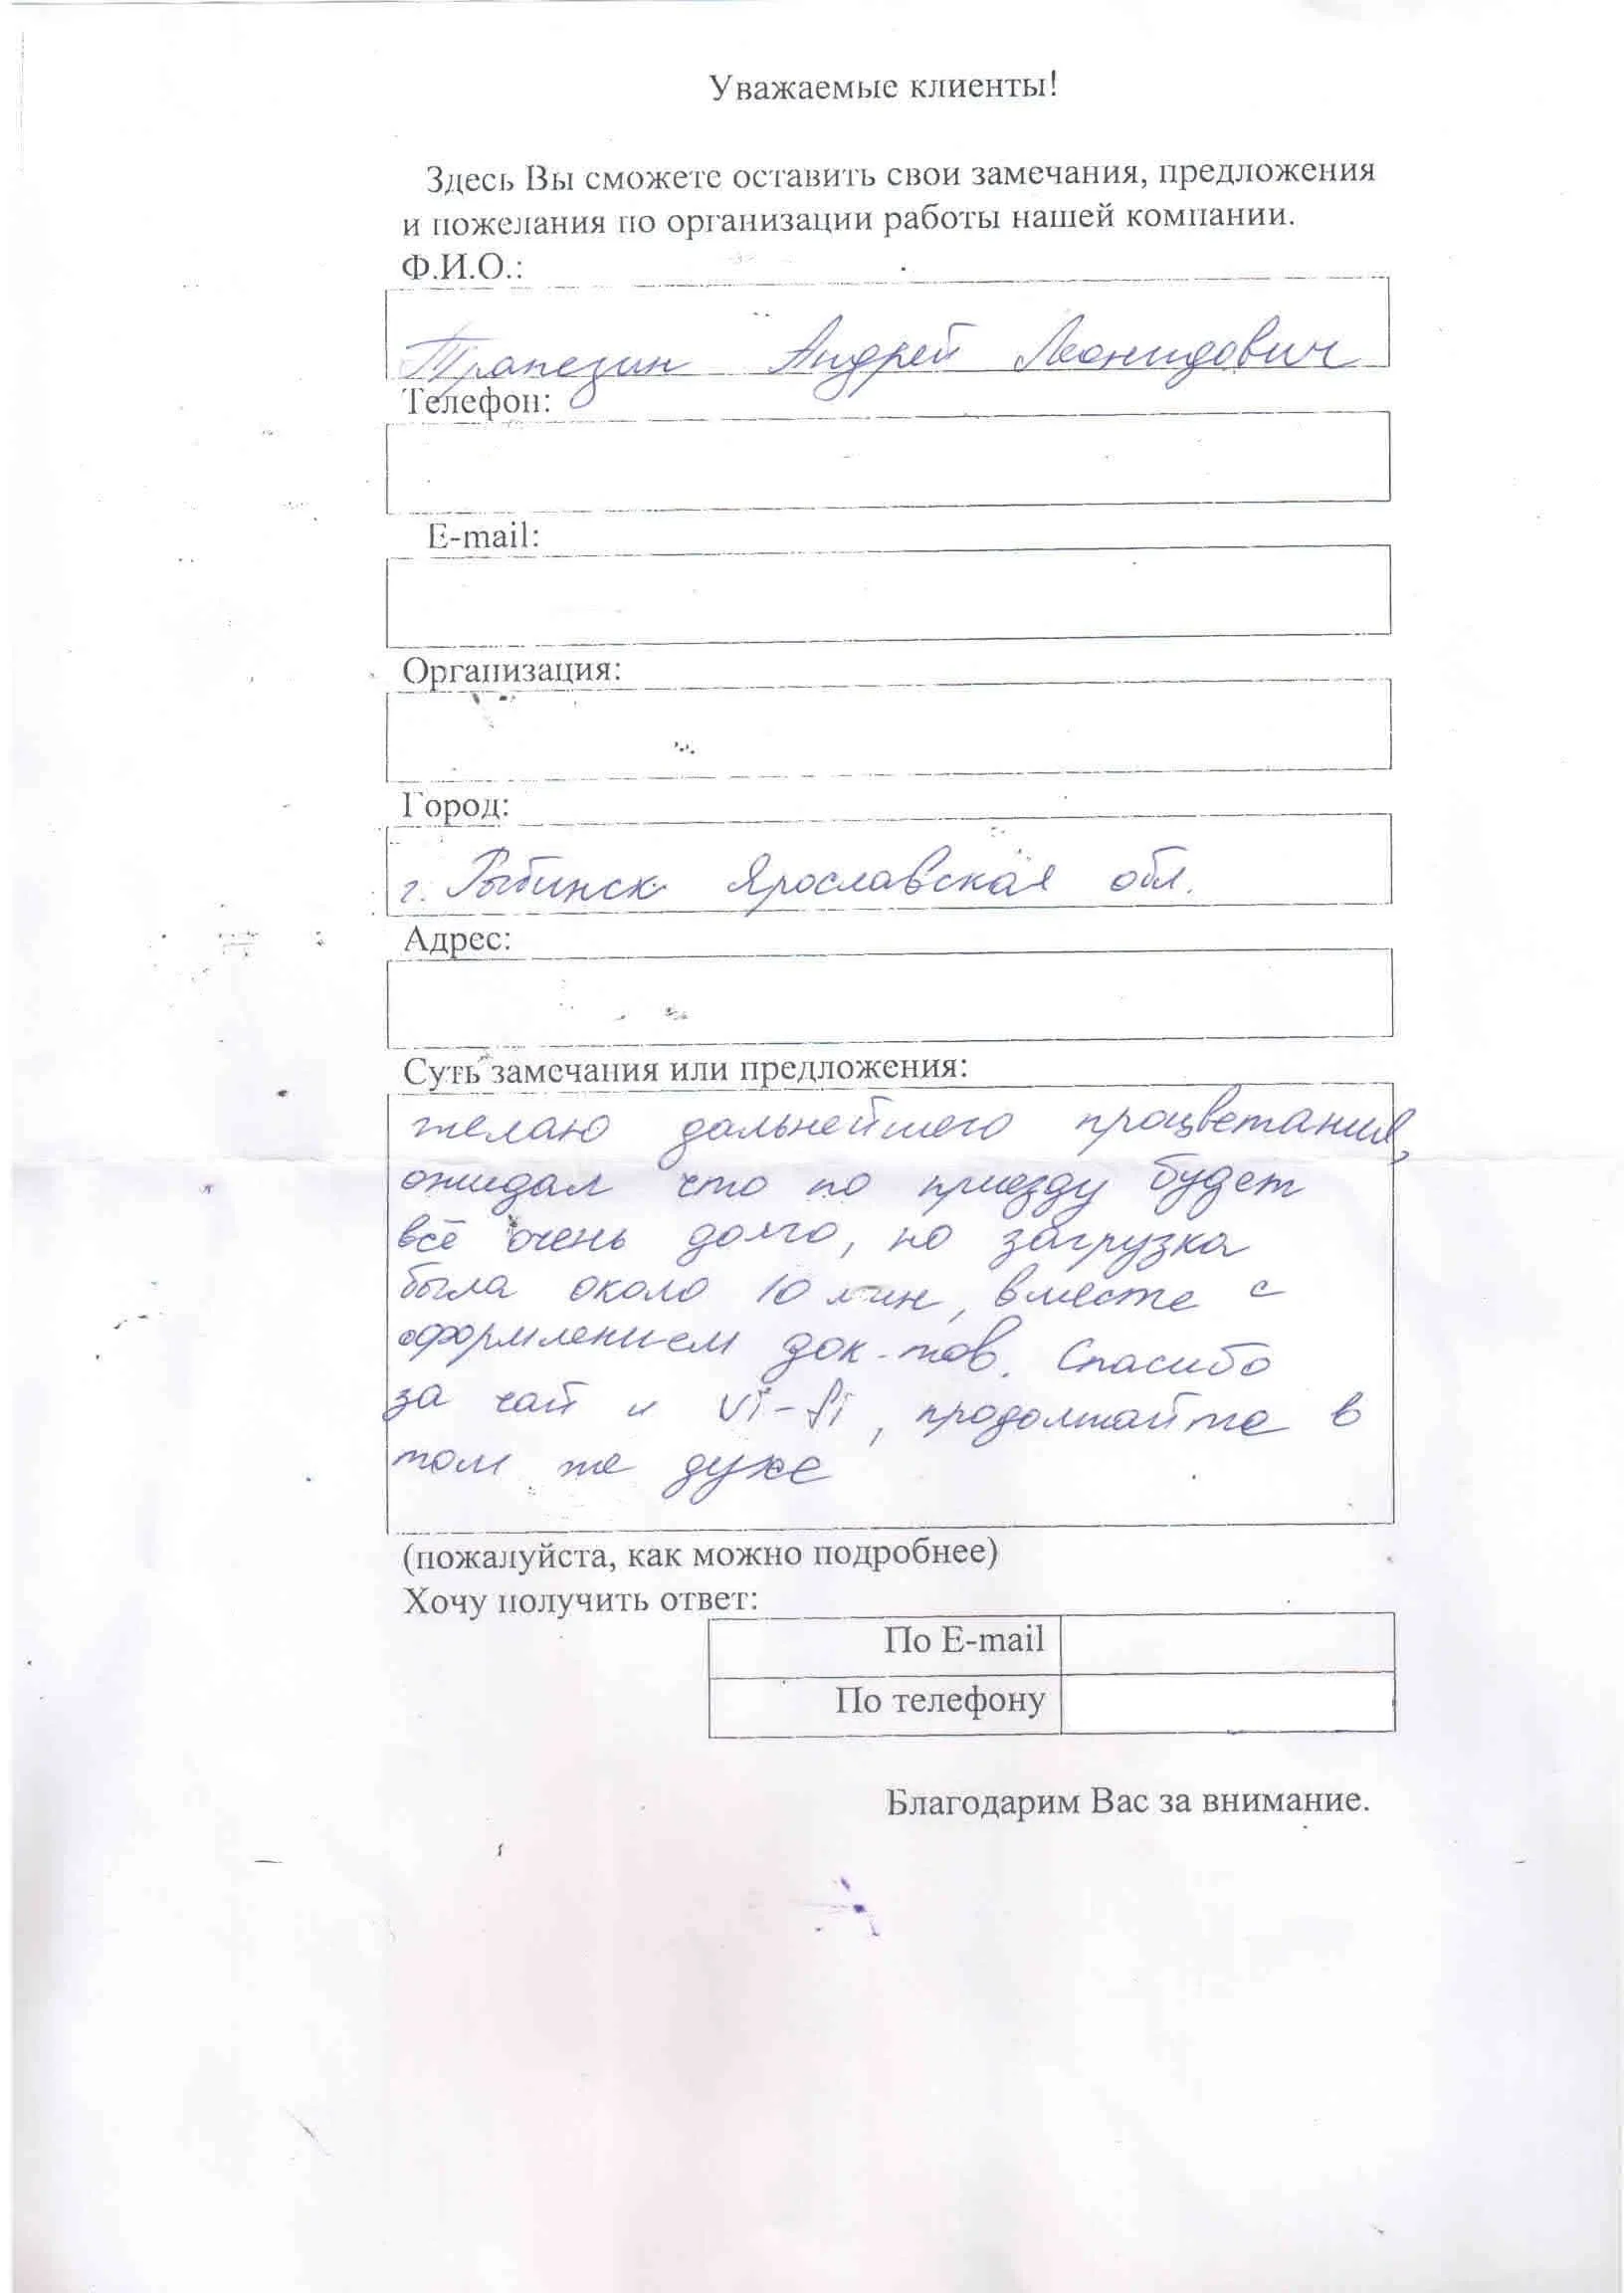 Уважаемые клиенты!
Здесь Вы сможете оставить свои замечания, предложения
и пожелания по организации работы нашей компании.
Ф.И.О.:
Трапезин Андрей Леонидович
Телефон:
E-mail:
Организация:
Город:
г. Рыбинск Ярославская обл.
Адрес:
Суть замечания или предложения:
желаю дальнейшего процветания,
ожидал что по приезду будет
всё очень долго, но загрузка
была около 10 мин, вместе с
оформлением док-тов. Спасибо
за чай и vi-fi, продолжайте в
том же духе
(пожалуйста, как можно подробнее)
Хочу получить ответ:
По E-mail
По телефону
Благодарим Вас за внимание.